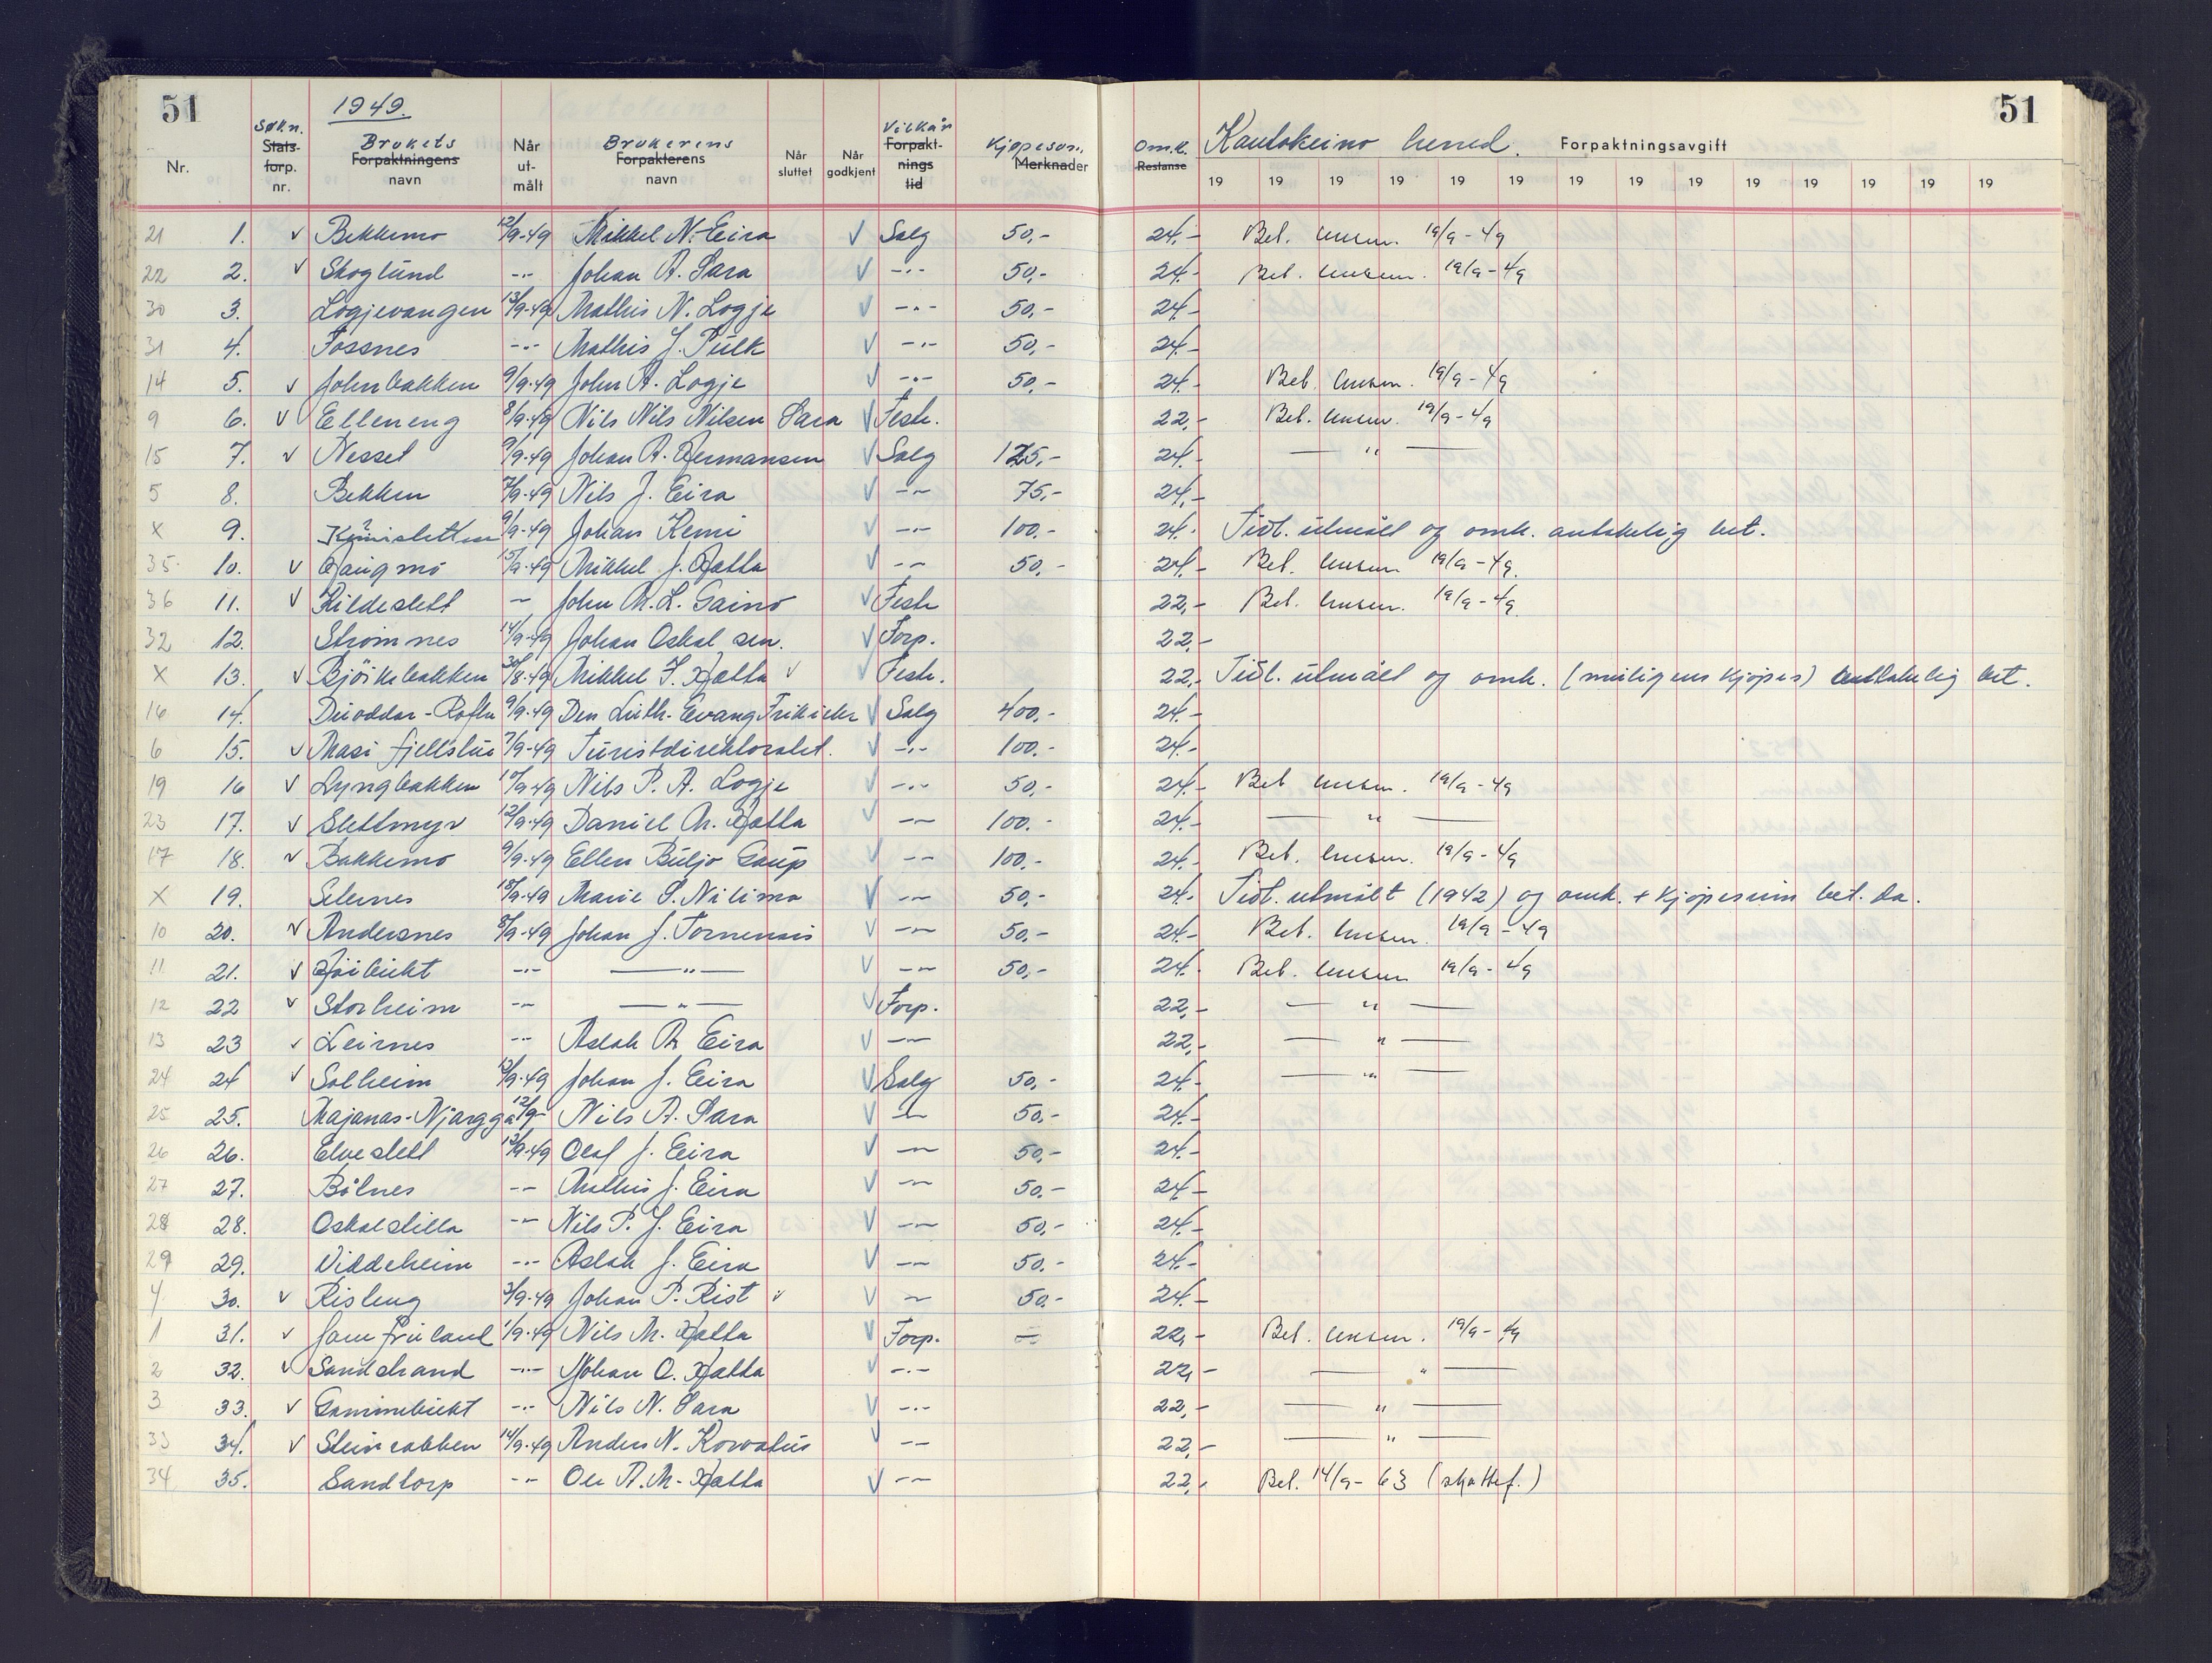 51 1949. Kautokeino herred. Forpaktningsavgift 51
Nr. Søkn. Stats-forp. nr. Brukets Forpaktningens navn Når ut-målt Brukerens Forpakterens navn Når sluttet Når godkjent Vilkår Forpakt-nings tid Kjøpesum. Merknader Omk. Restanse 19 19 19 19 19 19 19 19 19 19 19 19 19 19
21 1. v Bekkemo 12/9-49 Mikkel N. Eira v Salg 50,- 24.- Bet. 19/9-49
22 2. v Skoglund -"- Johan A. Sara v -"- 50,- 24.- Bet. 19/9-49
30 3. Logjevangen 13/9-49 Mathis N. Logje v -"- 50.- 24.-
31 4. Fossnes -"- Mathis J. Pulk v -"- 50.- 24.-
14 5. v Johnbakken 9/9-49 John A. Logje v -"- 50,- 24.- Bet. 19/9-49
9 6. v Elleneng 8/9-49 Nils Nils Nilsen Sara v Feste. 22,- Bet. 19/9-49
15 7. v Nesset 9/9-49 Johan A. Hermansen v Salg 125,- 24.- — " —
5 8. Bekken 7/9-49 Nils J. Eira v -"- 75,- 24,-
x 9. 9/9-49 Johan Kemi v -"- 100.- 24.- Tidl. utmålt og omk. antakelig bet.
35 10. v Haugmo 15/9-49 Mikkel J. Hætta v -"- 50.- 24.- Bet. 19/9-49.
36 11. v Kildeslett -"- John M. L. Gaino v Feste 22,- Bet. 19/9-49.
32 12. Strømnes 14/9-49 Johan Oskal sen. v Forp. 22,-
x 13. v Bjørkebakken 30/8-49 Mikkel J. Hætta v v Feste. 22,- Tidl. utmålt og omk. (muligens kjøpes) antakelig bet.
16 14. Duoddar- 9/9-49 Den Luth. Evang Frikirke v Salg 400.- 24.-
6 15. v Masi fjellstue 7/9-49 Turistdirektoratet. v -"- 100.- 24.-
19 16 v Lyngbakken 10/9-49 Nils P. A. Logje v -"- 50,- 24.- Bet. 19/9-49
23 17. v Slettmyr 12/9-49 Daniel M. Hætta v -"- 100.- 24.- — " —
17 18. v Bakkemo 9/9-49 Ellen Buljo Gaup v -"- 100.- 24.- Bet. 19/9-49
x 19. Selernes 10/9-49 Marie S. Nilima v -"- 50,- 24.- Tidl. utmålt (1942) og omk. + kjøpesum bet. da.
10 20. v Andersnes 8/9-49 Johan J. Tornensis v -"- 50,- 24.- Bet. 19/9-49
11 21. v Høibukt -"- — " — v -"- 50,- 24.- Bet. 19/9-49
12 22 v Storheim -"- — " — v Forp. 22,- — " —
13 23 v Leirnes -"- Aslak A. Eira v -"- 22,- — " —
24 24 v Solheim 12/9-49 Johan J. Eira v Salg 50,- 24.- — " —
25 25. Majanas-Njargga 12/9- Nils A. Sara v -"- 50,- 24.-
26 26. Elveslett 12/9-49 Olaf J. Eira v -"- 50,- 24.-
27 27. Bålnes -"- Mathis J. Eira v -"- 50.- 24.-
28 28. Oskalstilla -"- Nils P. J. Eira v -"- 50,- 24.-
29 29. Viddeheim -"- Aslak J. Eira v -"- 50.- 24.-
4 30. v Risleng 3/9-49 Johan P. Rist v v -"- 50.- 24.-
1 31. v 1/9-49 Nils M. Hætta v Forp. — 22,- Bet. 19/9-49
2 32. v Sandstrand -"- Johan O. Hætta v -"- 22,- — " —
3 33. v Gammebukt -"- Nils N. Sara v -"- 22,- — " —
33 34. v Steinrabben 14/9-49 Anders N. Korvatus v -"- 22,- — " —
34 35. Sandtorp -"- Ole A. M. Hætta v -"- 22,- Bet. 14/9-63 (skattef.)